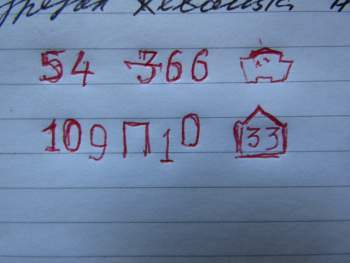 54 366
109 П 10 33